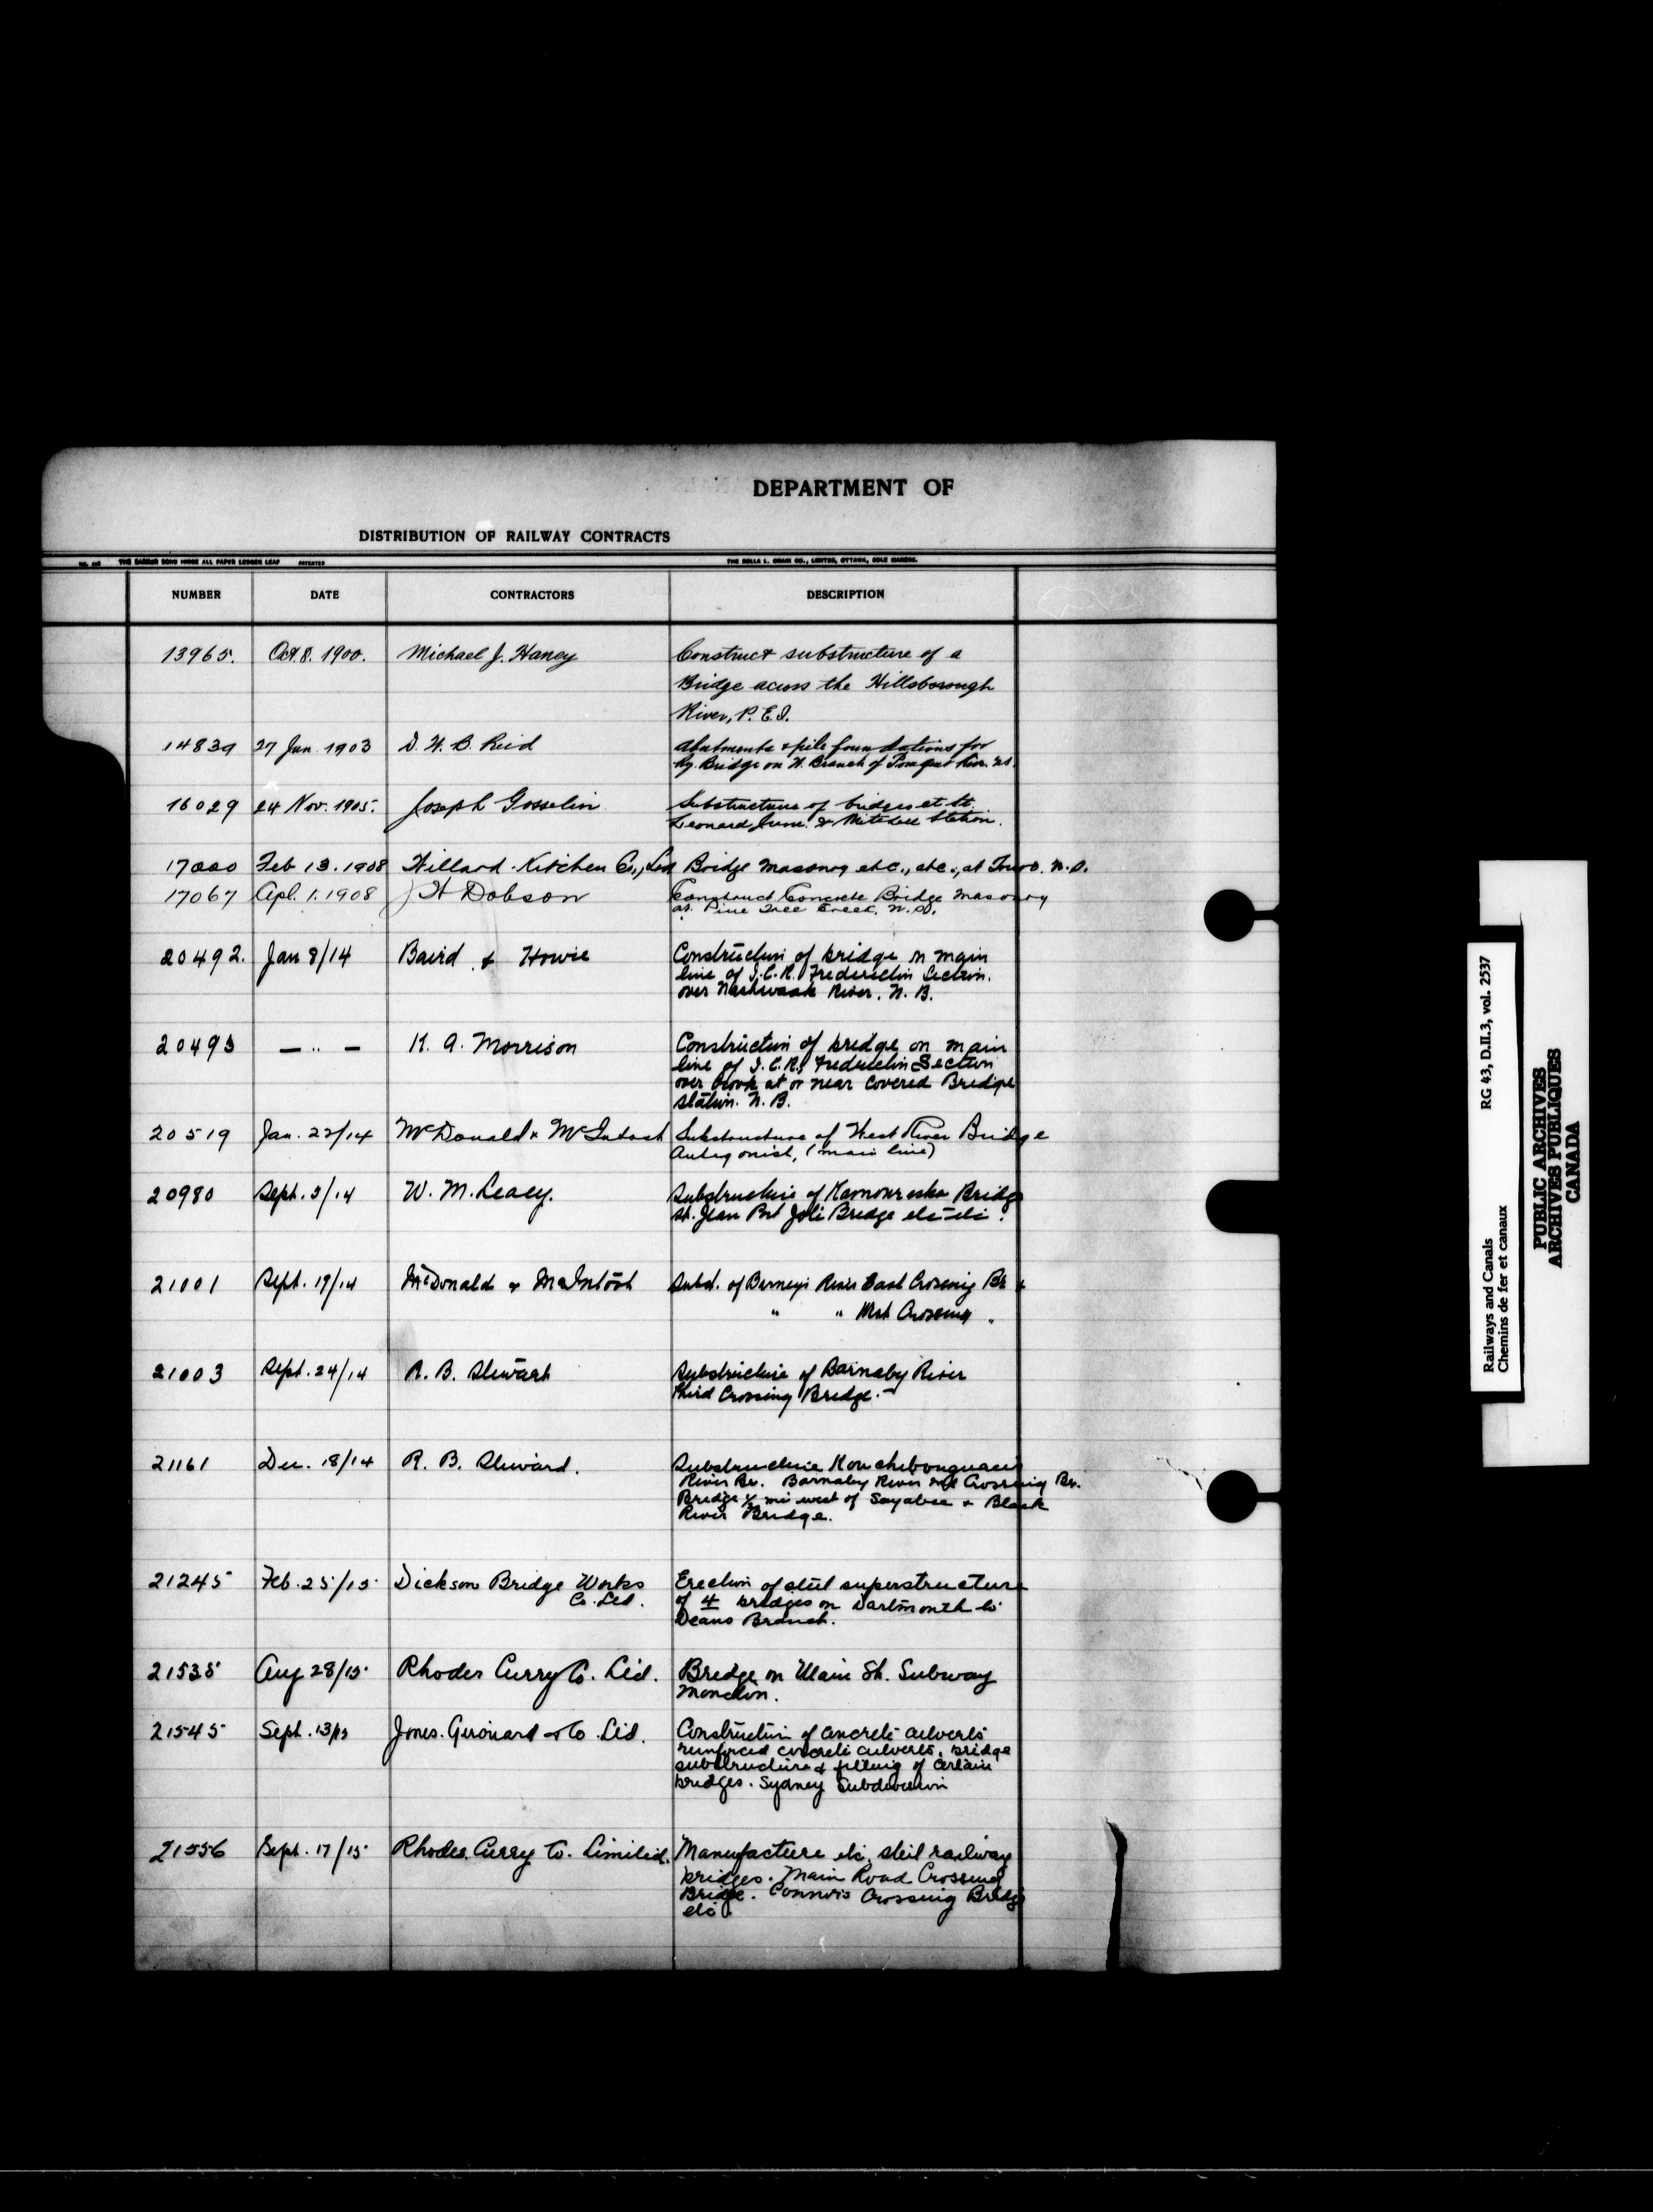 DEPARTMENT OF
DISTRIBUTION OF RAILWAY CONTRACTS
THE ROLLA L. CRAIN CO., LIMITED, OTTAWA, SOLE MAKERS.
NUMBER DATE CONTRACTORS DESCRIPTION
13965. Oct. 8. 1900. Michael J. Haney Construct substructure of a
Bridge across the Hillsborough
River, P.E.I.
14839 27 Jan. 1903 D. W. B. Reid Abutments & pile foundations for
Ry. Bridge on W. Branch of Pomquet River. N.S.
16029 24 Nov. 1905. Joseph Gosselin Substructure of bridges at St.
Leonard Junc. & Mitchell Station.
17000 Feb 13. 1908 Willard Kitchen Co., Ltd Bridge Masonry etc., etc., at Truro. N.S.
17067 Apl. 1. 1908 J H Dobson Construct Concrete Bridge Masonry
at Pine Tree Creek, N.S.
20492. Jan 8/14 Baird & Howie Construction of bridge on main
line of I.C.R. Fredericton Section.
over Nashwaak River. N.B.
20493 — " — K. A. Morrison Construction of bridge on main
line of I.C.R., Fredericton Section
over brook at or near Covered Bridge
station. N.B.
20519 Jan. 22/14 McDonald & McIntosh Substructure of West River Bridge
Antigonish, (main line)
20980 Sept. 3/14 W. M. Leacy. Substructure of Kamouraska Bridge
St. Jean Port Joli Bridge etc etc.
21001 Sept. 19/14 McDonald & McIntosh Subst. of Barneys River East Crossing Br &
" " West Crossing "
21003 Sept. 24/14 R. B. Stewart Substructure of Barnaby River
third Crossing Bridge. —
21161 Dec. 18/14 R. B. Steward. Substructure Kouchibouguacis
River Br. Barnaby River 2nd Crossing Br.
Bridge ½ mi west of Sayabec & Black
River Bridge.
21245 Feb. 25/15 Dickson Bridge Works Erection of steel superstructure
Co. Ltd. of 4 bridges on Dartmouth to
Deans Branch.
21535 Aug 28/15 Rhodes Curry Co. Ltd. Bridge on Main St. Subway
Moncton.
21545 Sept. 13/15 Jones. Girouard & Co. Ltd. Construction of concrete culverts
reinforced concrete culverts, bridge
substructure & filling of certain
bridges. Sydney Subdivision
21556 Sept. 17/15 Rhodes. Curry Co. Limited. Manufacture etc. steel railway
bridges. Main Road Crossing
Bridge. Connors Crossing Bridge
etc.
Railways and Canals RG 43, D.II.3, vol. 2537
Chemins de fer et canaux
PUBLIC ARCHIVES
ARCHIVES PUBLIQUES
CANADA